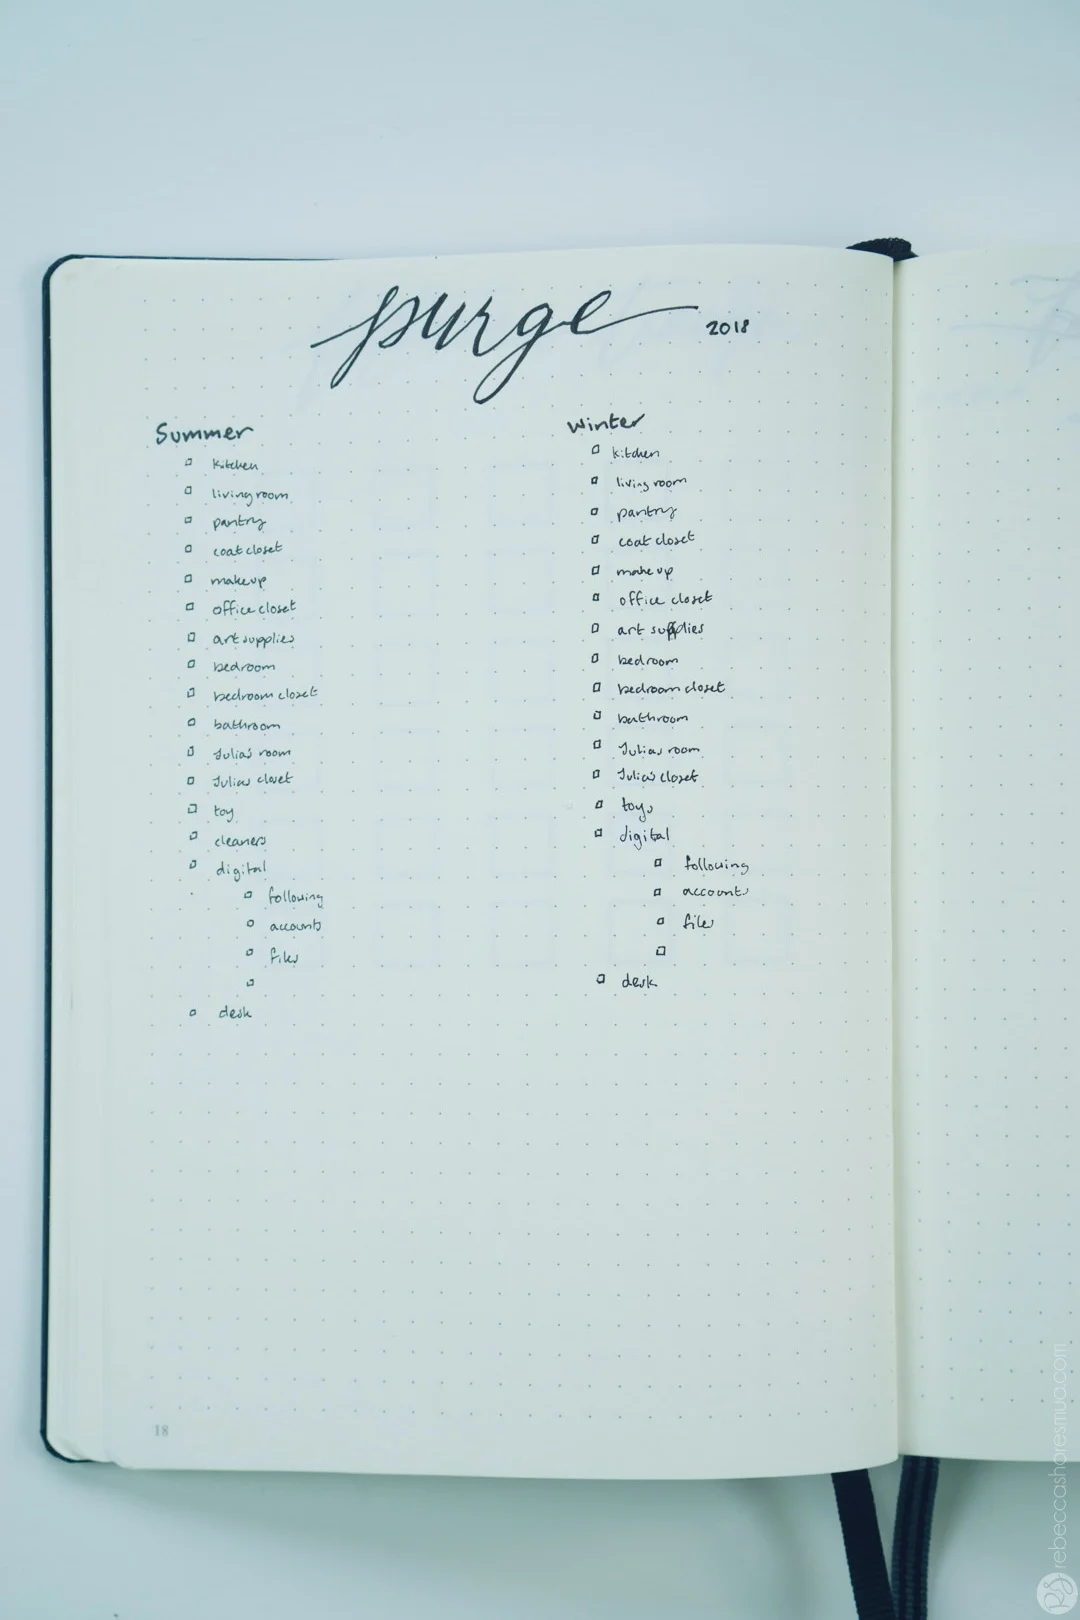 purge 2018
Summer
kitchen
living room
pantry
coat closet
makeup
office closet
art supplies
bedroom
bedroom closet
bathroom
Julias room
Julias closet
toy
cleaners
digital
following
accounts
files
desk
Winter
kitchen
living room
pantry
coat closet
makeup
office closet
art supplies
bedroom
bedroom closet
bathroom
Julias room
Julias closet
toys
digital
following
accounts
files
desk
18
RS rebeccashoresmua.com